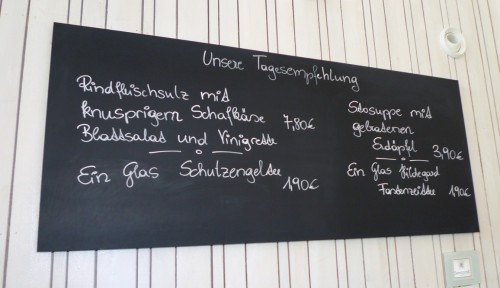 Unsere Tagesempfehlung
Rindfleischsulz mit
knusprigem Schafkäse 7,80€
Blattsalat und Vinigrette
Ein Glas Schutzengeltee 1,90€
Stosuppe mit
gebratenen
Erdäpfel 3,90€
Ein Glas Hildegard
1,90€